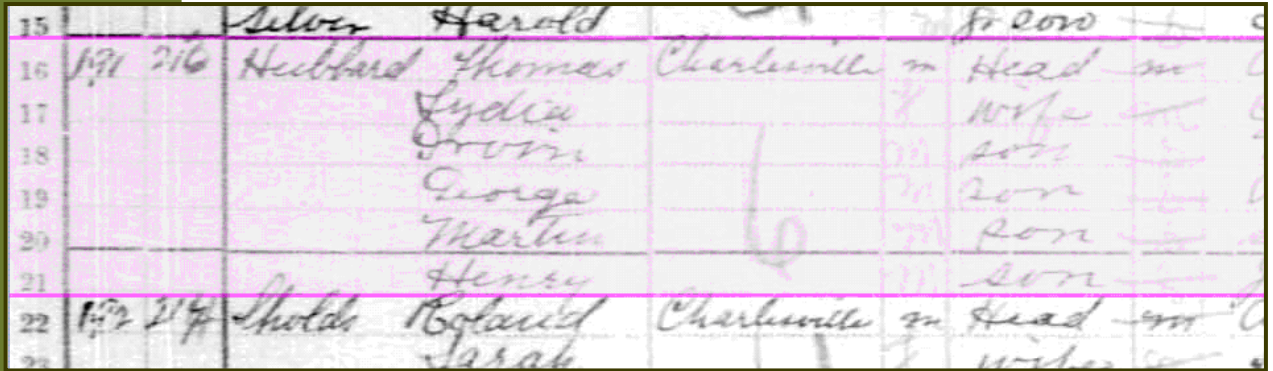 15 Silver Harold gr son s
16 191 216 Hubbard Thomas Charlesville m Head m
17 Lydia f wife m
18 Irvin m son s
19 George m son s
20 Martin m son s
21 Henry m son s
22 192 217 Sholds Roland Charlesville m Head m
23 Sarah f wife
6